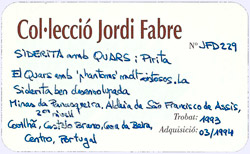 Col·lecció Jordi Fabre
Nº JFD229
SIDERITA amb QUARS i Pirita
El Quars amb "phantoms" molt vistosos. La
Siderita ben desenvolupada
Minas da Panasqueira, Aldeia de San Francisco de Assis,
2on nivell
Covilhã, Castelo Branco, Cova da Beira,
Centro, Portugal
Trobat: 1993
Adquisició: 03/1994